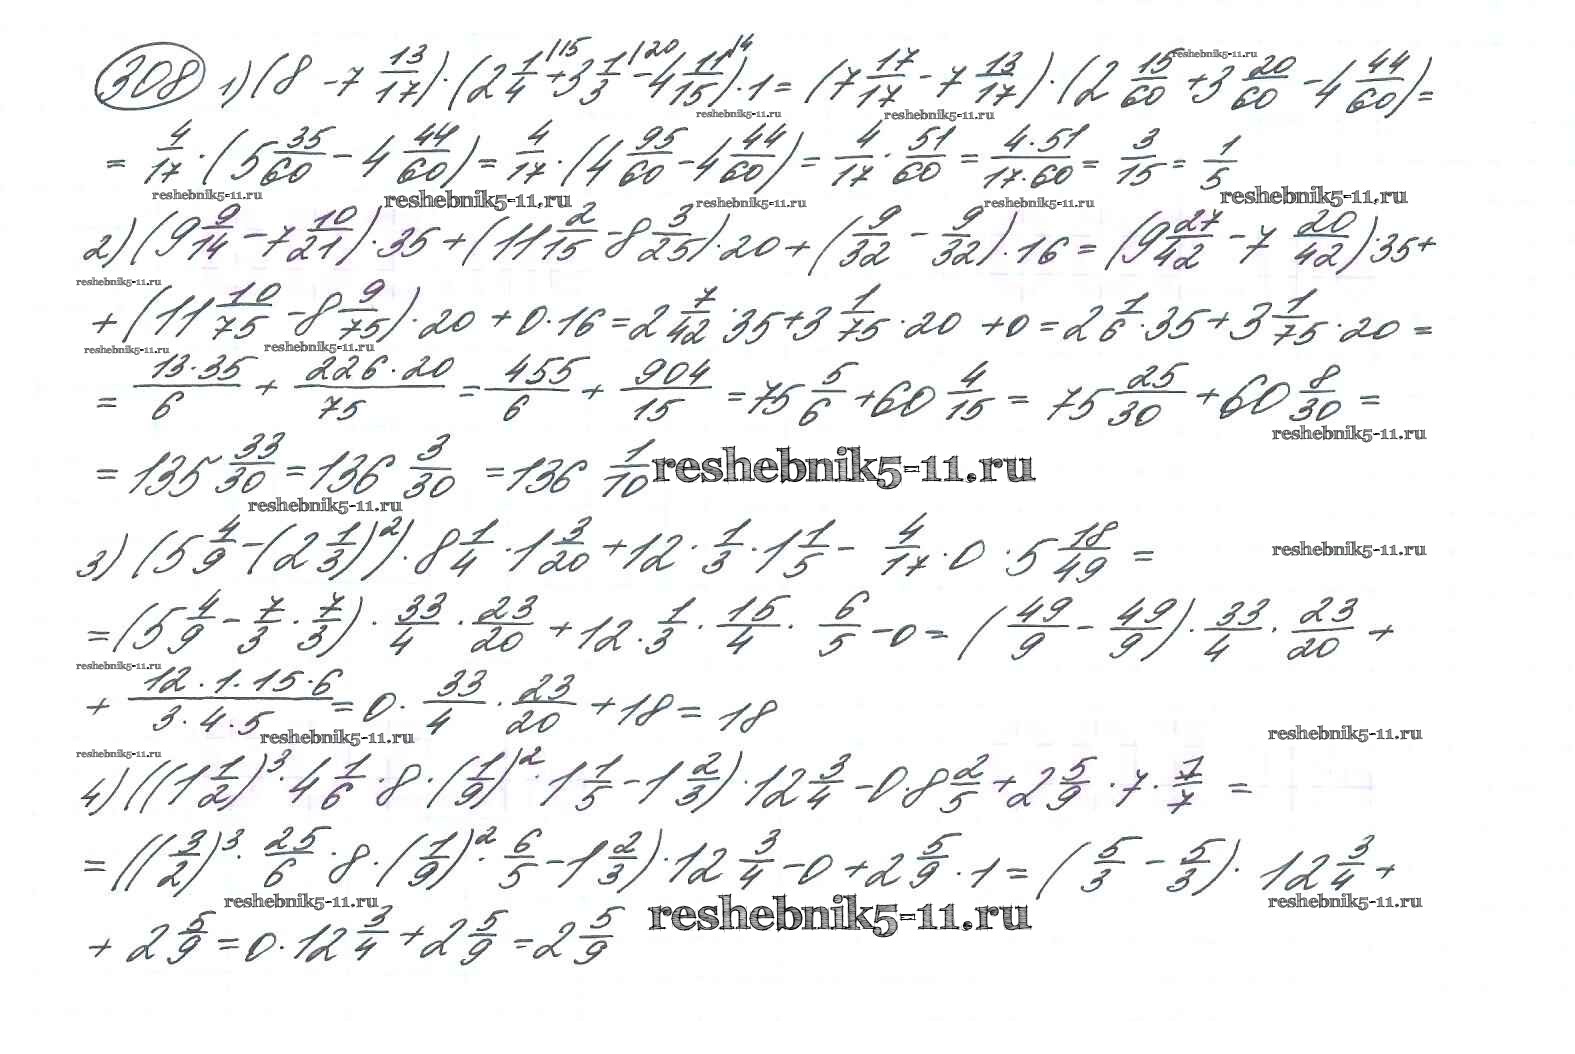 308 1) (8 - 7 13/17) · (2 1/4 |15 + 3 1/3 |20 - 4 11/15 |4) · 1 = (7 17/17 - 7 13/17) · (2 15/60 + 3 20/60 - 4 44/60) =
= 4/17 · (5 35/60 - 4 44/60) = 4/17 · (4 95/60 - 4 44/60) = 4/17 · 51/60 = 4·51/17·60 = 3/15 = 1/5
2) (9 9/14 - 7 10/21) · 35 + (11 2/15 - 8 3/25) · 20 + (9/32 - 9/32) · 16 = (9 27/42 - 7 20/42) · 35 +
+ (11 10/75 - 8 9/75) · 20 + 0 · 16 = 2 7/42 · 35 + 3 1/75 · 20 + 0 = 2 1/6 · 35 + 3 1/75 · 20 =
= 13·35/6 + 226·20/75 = 455/6 + 904/15 = 75 5/6 + 60 4/15 = 75 25/30 + 60 8/30 =
= 135 33/30 = 136 3/30 = 136 1/10
3) (5 4/9 - (2 1/3)²) · 8 1/4 · 1 3/20 + 12 · 1/3 · 1 1/5 - 4/17 · 0 · 5 18/49 =
= (5 4/9 - 7/3 · 7/3) · 33/4 · 23/20 + 12 · 1/3 · 15/4 · 6/5 - 0 = (49/9 - 49/9) · 33/4 · 23/20 +
+ 12·1·15·6/3·4·5 = 0 · 33/4 · 23/20 + 18 = 18
4) ((1 1/2)³ · 4 1/6 · 8 · (1/9)² · 1 1/5 - 1 2/3) · 12 3/4 - 0 · 8 2/5 + 2 5/9 · 7 · 1/7 =
= ((3/2)³ · 25/6 · 8 · (1/9)² · 6/5 - 1 2/3) · 12 3/4 - 0 + 2 5/9 · 1 = (5/3 - 5/3) · 12 3/4 +
+ 2 5/9 = 0 · 12 3/4 + 2 5/9 = 2 5/9
reshebnik5-11.ru